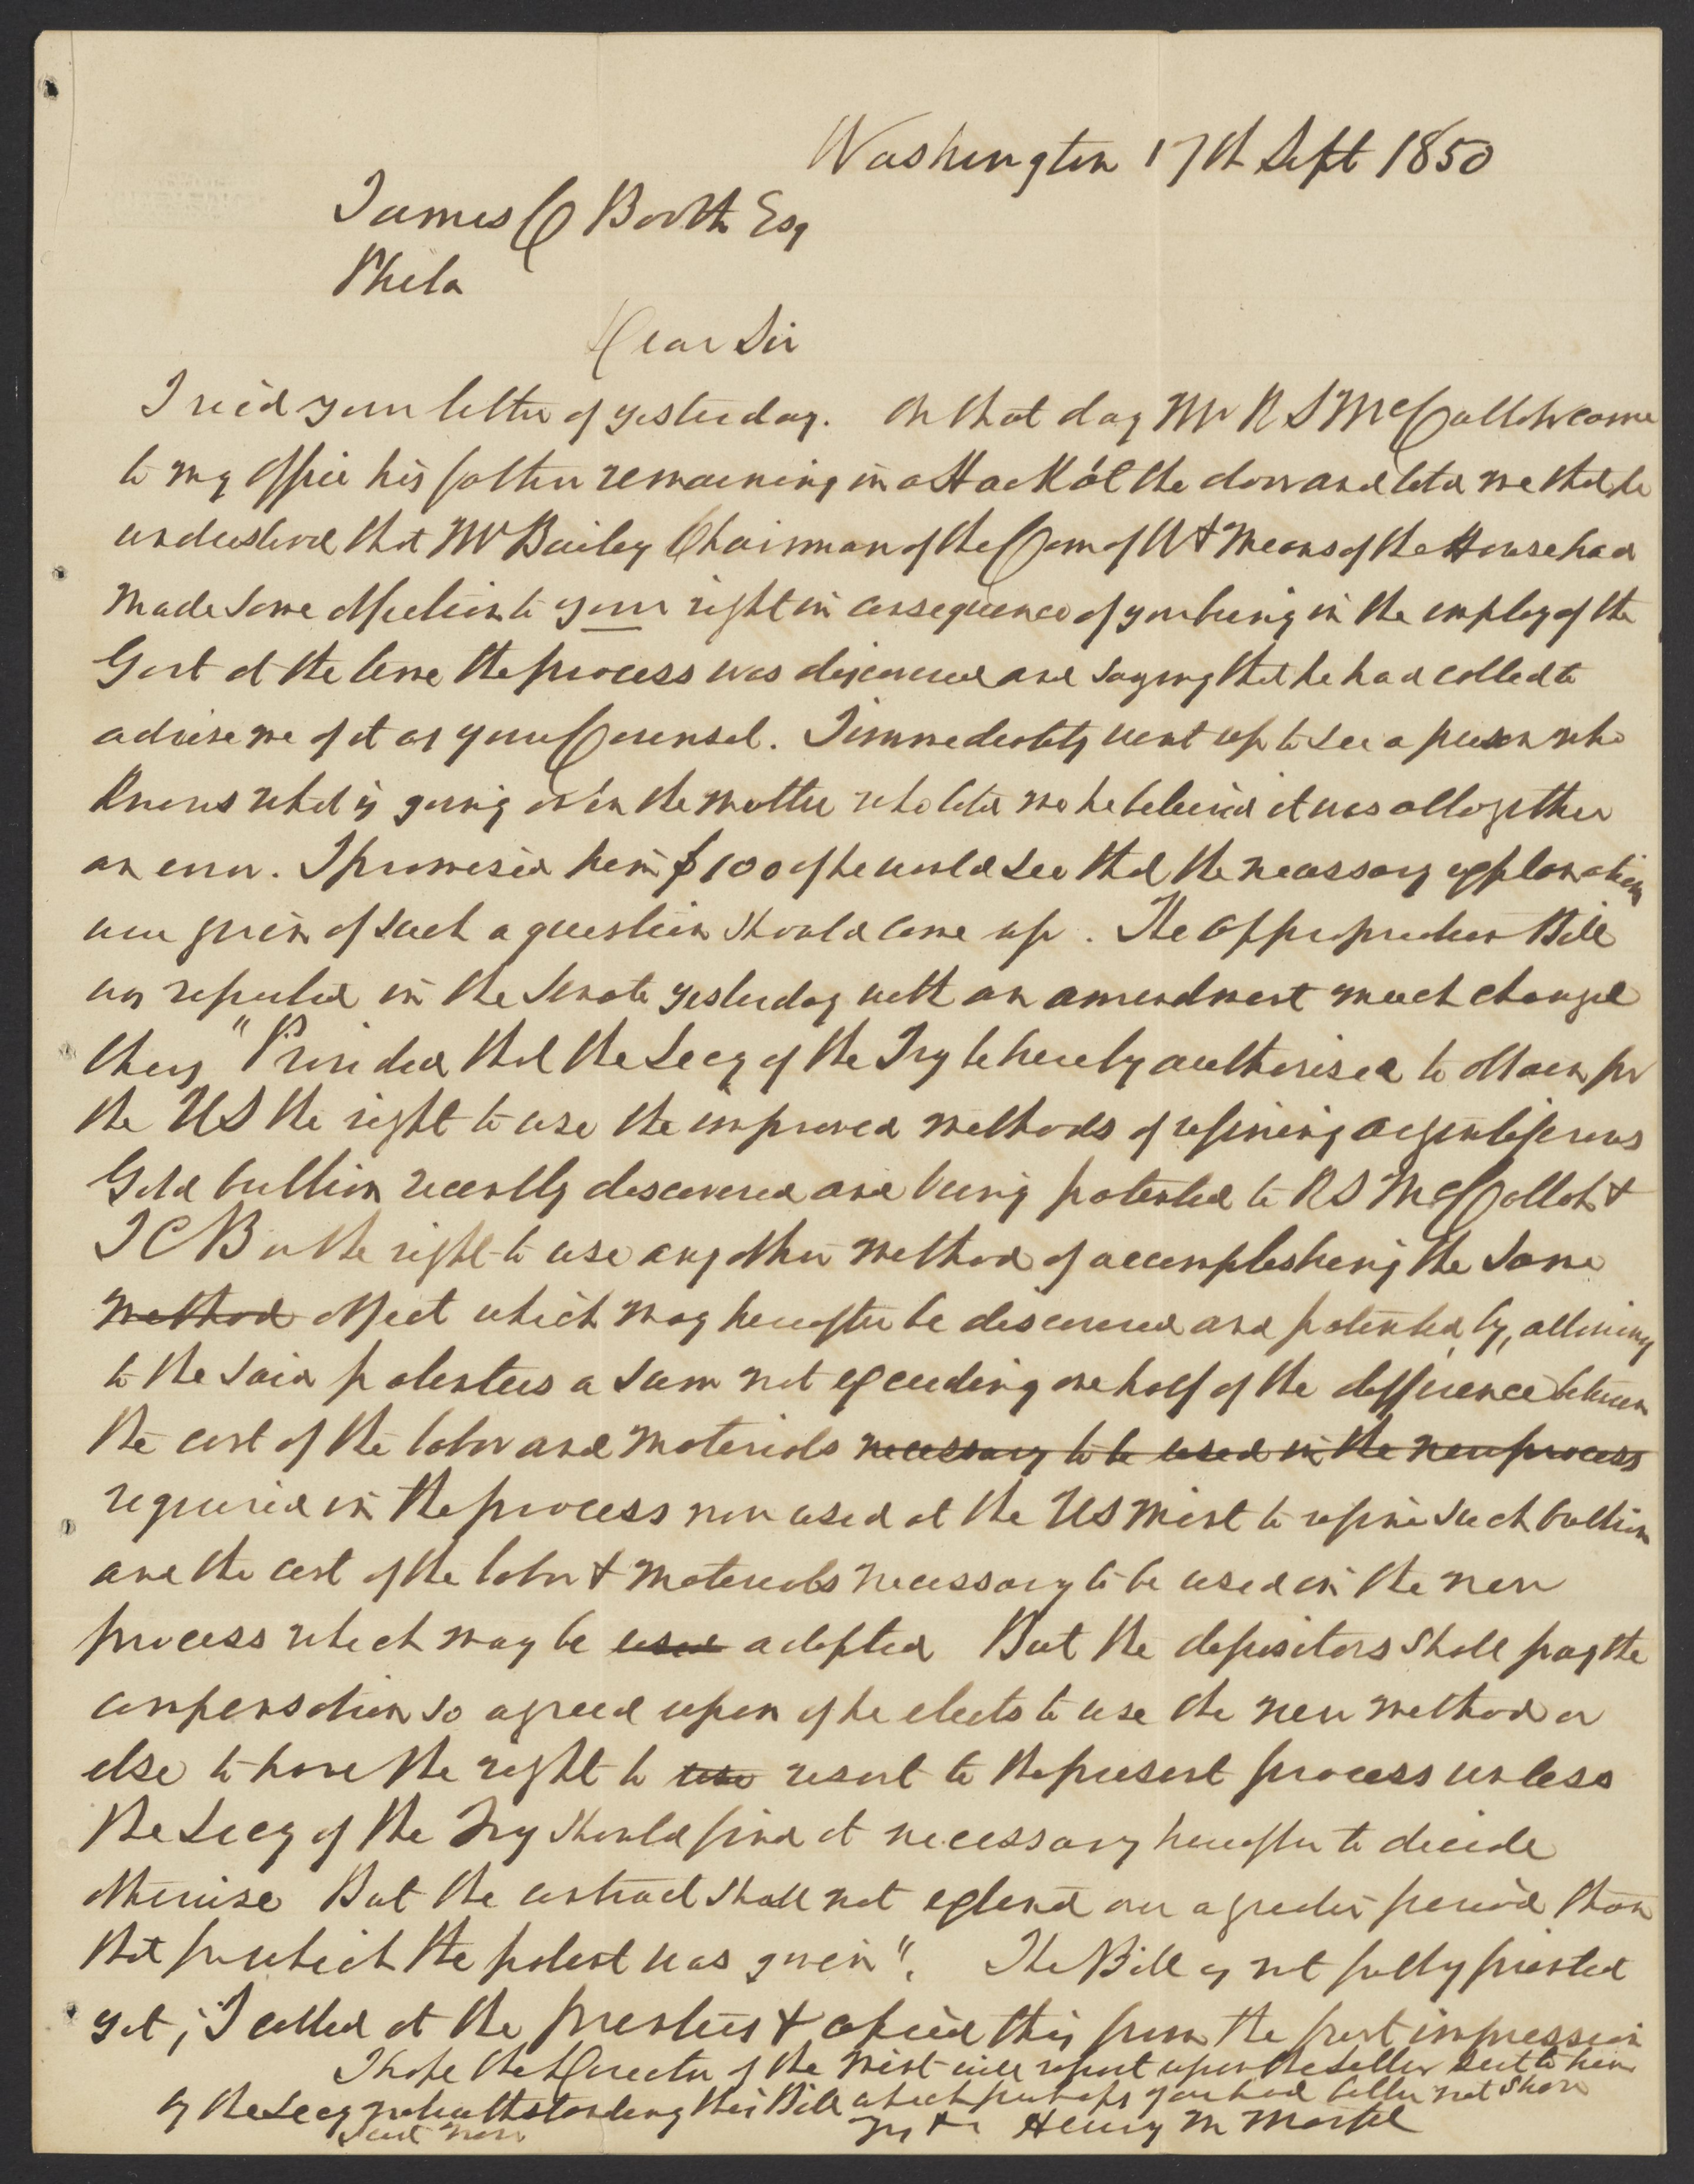 Washington 17th Sept 1850
James C Booth Esq
Phila
Dear Sir
I recd your letter of yesterday. On that day Mr R S McCulloh came
to my office his father remaining in a Hack at the door and told me that he
understood that Mr Bailey Chairman of the Com of W & Means of the House had
made some objection to your right in consequence of your being in the employ of the
Govt at the time the process was discovered and saying that he had called to
advise me of it as your Counsel. I immediately went up to see a person who
knows what is going on in the matter who told me he believed it was alltogether
an error. I promised him $100 if he would see that the necessary explanations
were given if such a question should come up. The Appropriation Bill
was reported in the Senate yesterday with an amendment much changed
thus "Provided that the Secy of the Try be hereby authorised to obtain for
the US the right to use the improved methods of refining argentiferous
Gold bullion recently discovered and being patented to R S McCulloh &
J C B or the right to use any other method of accomplishing the same
method object which may hereafter be discovered and patented, by, allowing
to the said patentees a sum not exceeding one half of the difference between
the cost of the labor and materials necessary to be used in the new process
required in the process now used at the US Mint to refine such bullion
and the cost of the labor & materials necessary to be used in the new
process which may be used adopted But the depositors shall pay the
compensation so agreed upon if he elects to use the new method or
else to have the right to use resort to the present process unless
the Secy of the Try should find it necessary hereafter to decide
otherwise But the contract shall not extend over a greater period than
that for which the patent was given". The Bill is not fully printed
yet; I called at the printers & copied this from the first impression
I hope the Director of the Mint will report upon the letter sent to him
by the Secy notwithstanding this Bill which perhaps you had better not show
just now
Henry M